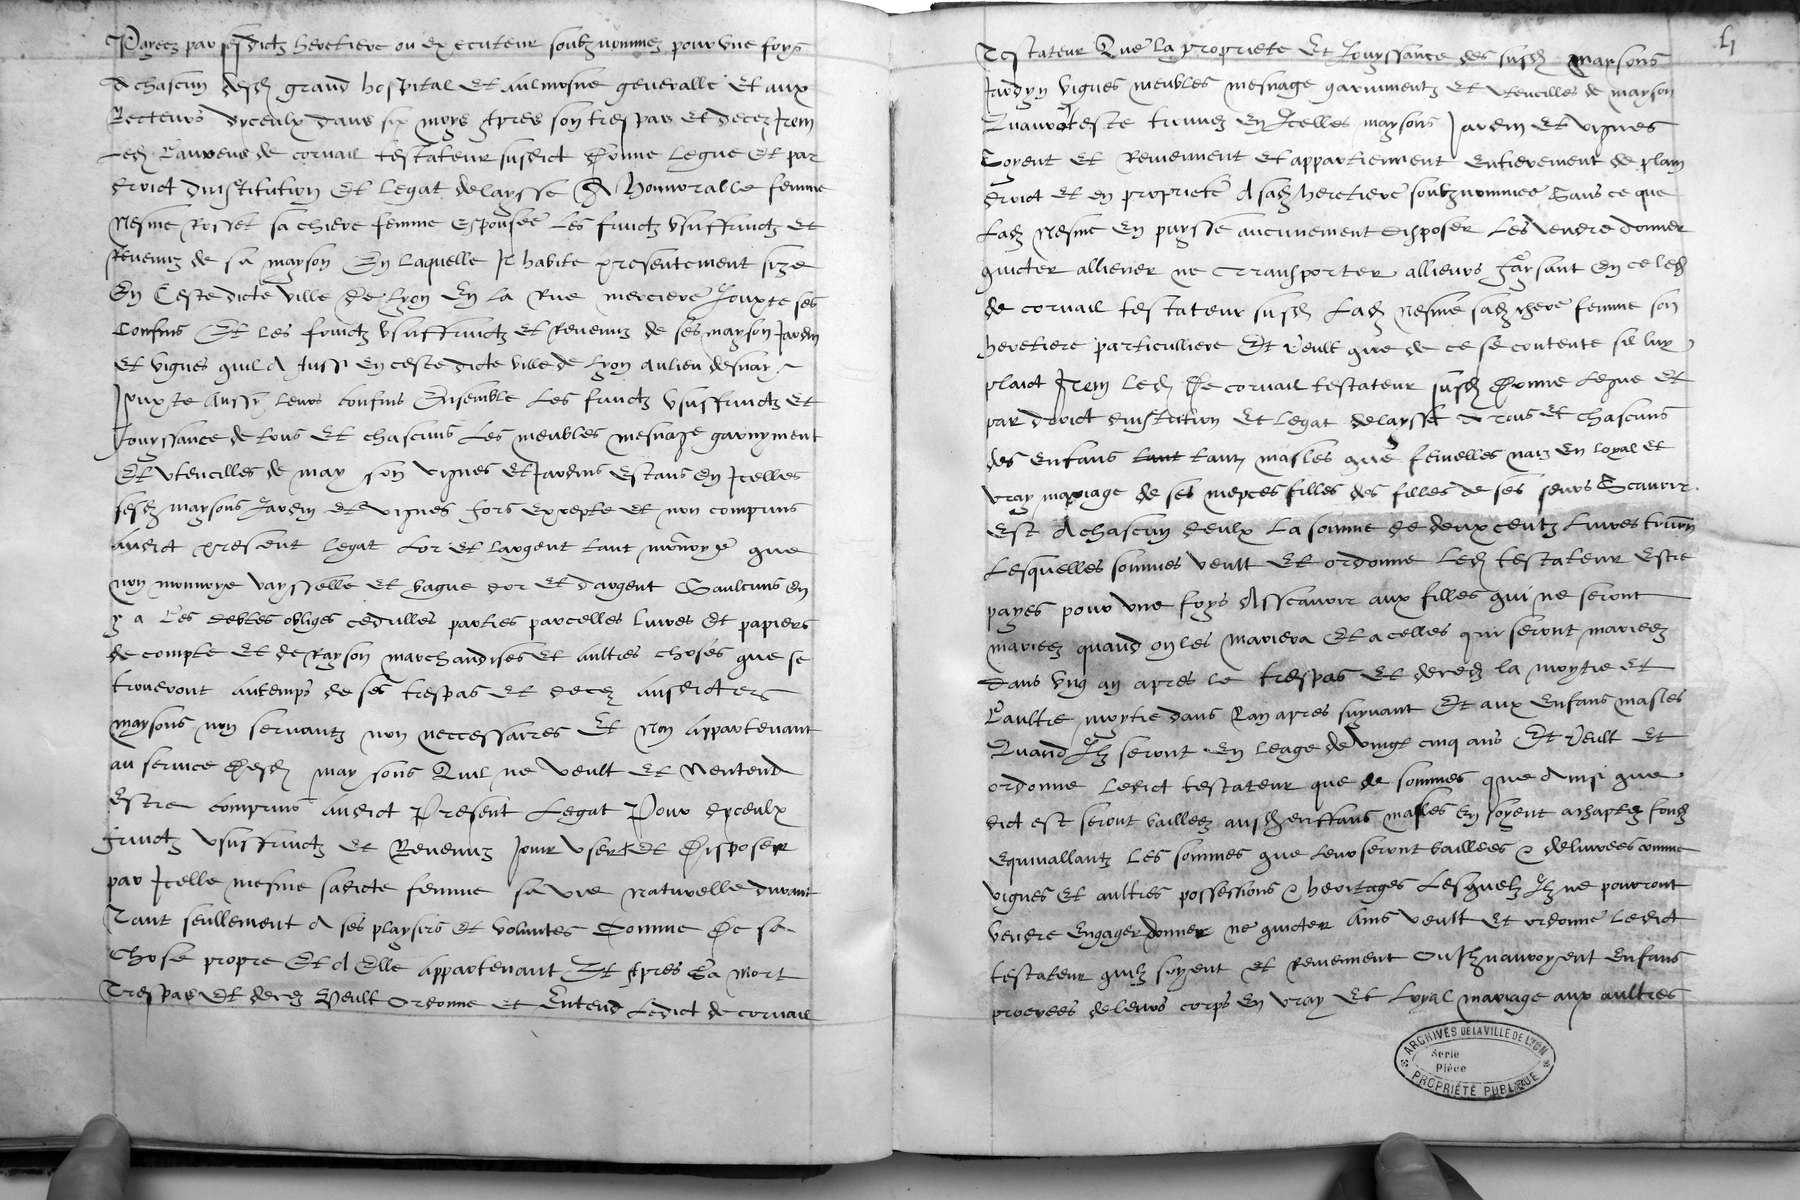 Payees par sesdictz heretiere ou executeur soubznommez pour une foys
A chascun desd grand hospital et aulmosne generalle et aux
Recteurs diceulx dans six moys apres son trespas et decez Item
Led Laurens de corval testateur susdict Donne legue et par
droict dinstitution et legat delaysse A honnoralle femme
Nesme Rosset sa chiere femme Espousee les fruictz usuffruictz et
Revenuz de sa mayson En laquelle Il habite presentement size
En Ceste dicte ville de Lyon En la Rue merciere Jouxte ses
Confins Et les fruictz usuffruictz et Revenuz de ses mayson Jardin
et vignes quil A Aussi en ceste dicte ville de Lyon au lieu desnay
Jouxte Aussi leurs confins Ensemble les fruictz usuffruictz et
Jouyssance de tous et chascuns les meubles mesnage garnyment
Et utencilles de may son vignes et Jardins estans en Icelles
sesd maysons Jardin et vignes fors excepte et non comprins
Audict present legat Lor et largent tant monnoye que
non monnoye vaysselle et bague dor et dargent Saulcuns en
y a Les debtes obliges cedulles parties parcelles livres et papiers
de compte et de Rayson marchandises et aultres choses que se
trouveront autemps de ses trespas et decez ausdictes
maysons non servantz non neccessaires Et Non Appartenant
au service Desd may sons Quil ne veult et Nentend
Estre comprins audict Present Legat Pour diceulx
fruictz usuffruictz et Revenuz Jouir user et Disposer
par Icelle mesme sadicte femme sa vie naturelle durant
Tant seullement A ses playsirs et voluntes Comme De sa
Chose propre Et A Elle appartenant Et Apres La mort
Trespas Et decez Veult ordonne et Entend Ledict de corval
Testateur Que la propriete Et Jouyssance des susd maysons
Jardyn vignes meubles mesnage garniments et utencilles de mayson
trouvez En Icelles maysons Jardin Et vignes
Soyent et Reviennent et appartiennent entierement de plain
droict et en propriete A sad heretiere soubznommee Sans ce que
Lad Nesme En puysse aucunement disposer les vendre donner
quicter alliener ne transporter allieurs faysant en ce led
de corval testateur susd Lad Nesme sad chere femme son
heretiere particulliere Et veult que de ce se contente sil luy
plaict Item led De corval testateur susd Donne legue Et
par droict dinstitution Et legat delaysse A tous et chascuns
des enfans tant tant masles que femelles naiz en loyal et
vray mariage de ses niepces filles des filles de ses seurs Scavoir
est A chascun deulx La somme de deux centz livres
Lesquelles sommes veult Et ordonne Led testateur Estre
payes pour une foys Asscavoir aux filles qui ne seront
mariees quand on les mariera Et a celles qui seront mariees
Dans ung an apres le trespas et decez la moytie et
Laultre moytie dans Lan apres suyvant Et aux Enfans masles
Quand Ilz seront en leage de vingt cinq ans Et Veult et
ordonne Ledict testateur que de sommes que Ainsi que
dict est seront baillees ausd enffans masles En soyent achaptez fondz
Equivallantz les sommes que leur seront baillees & delivrees comme
vignes et aultres possessions & heritages Lesquelz Ilz ne pourront
vendre engager donner ne quicter Ains veult et ordonne ledict
testateur quilz soyent et Reviennent ou Ilz nauroyent Enfans
procrees de leurs corps en vray et Loyal mariage aux aultres
ARCHIVES DE LA VILLE DE LYON
Serie
Pièce
PROPRIÉTÉ PUBLIQUE